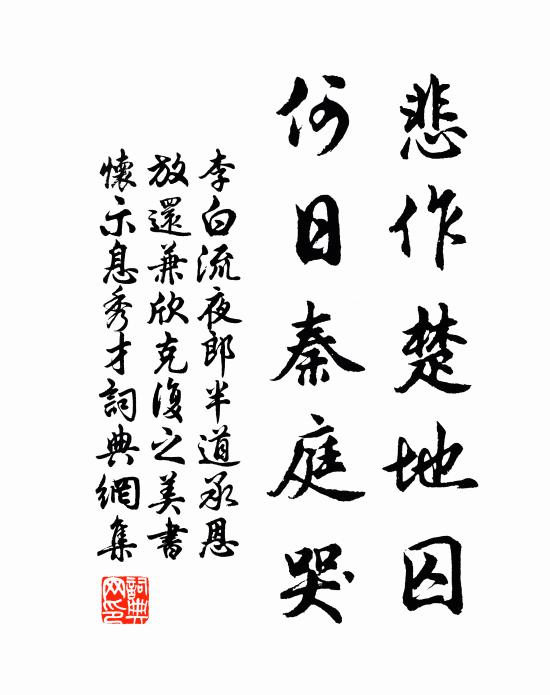 悲作楚地囚
何日秦庭哭
李白流夜郎半道承恩
放還兼欣克復之美書
懷示息秀才詞典網集
詞典
网印